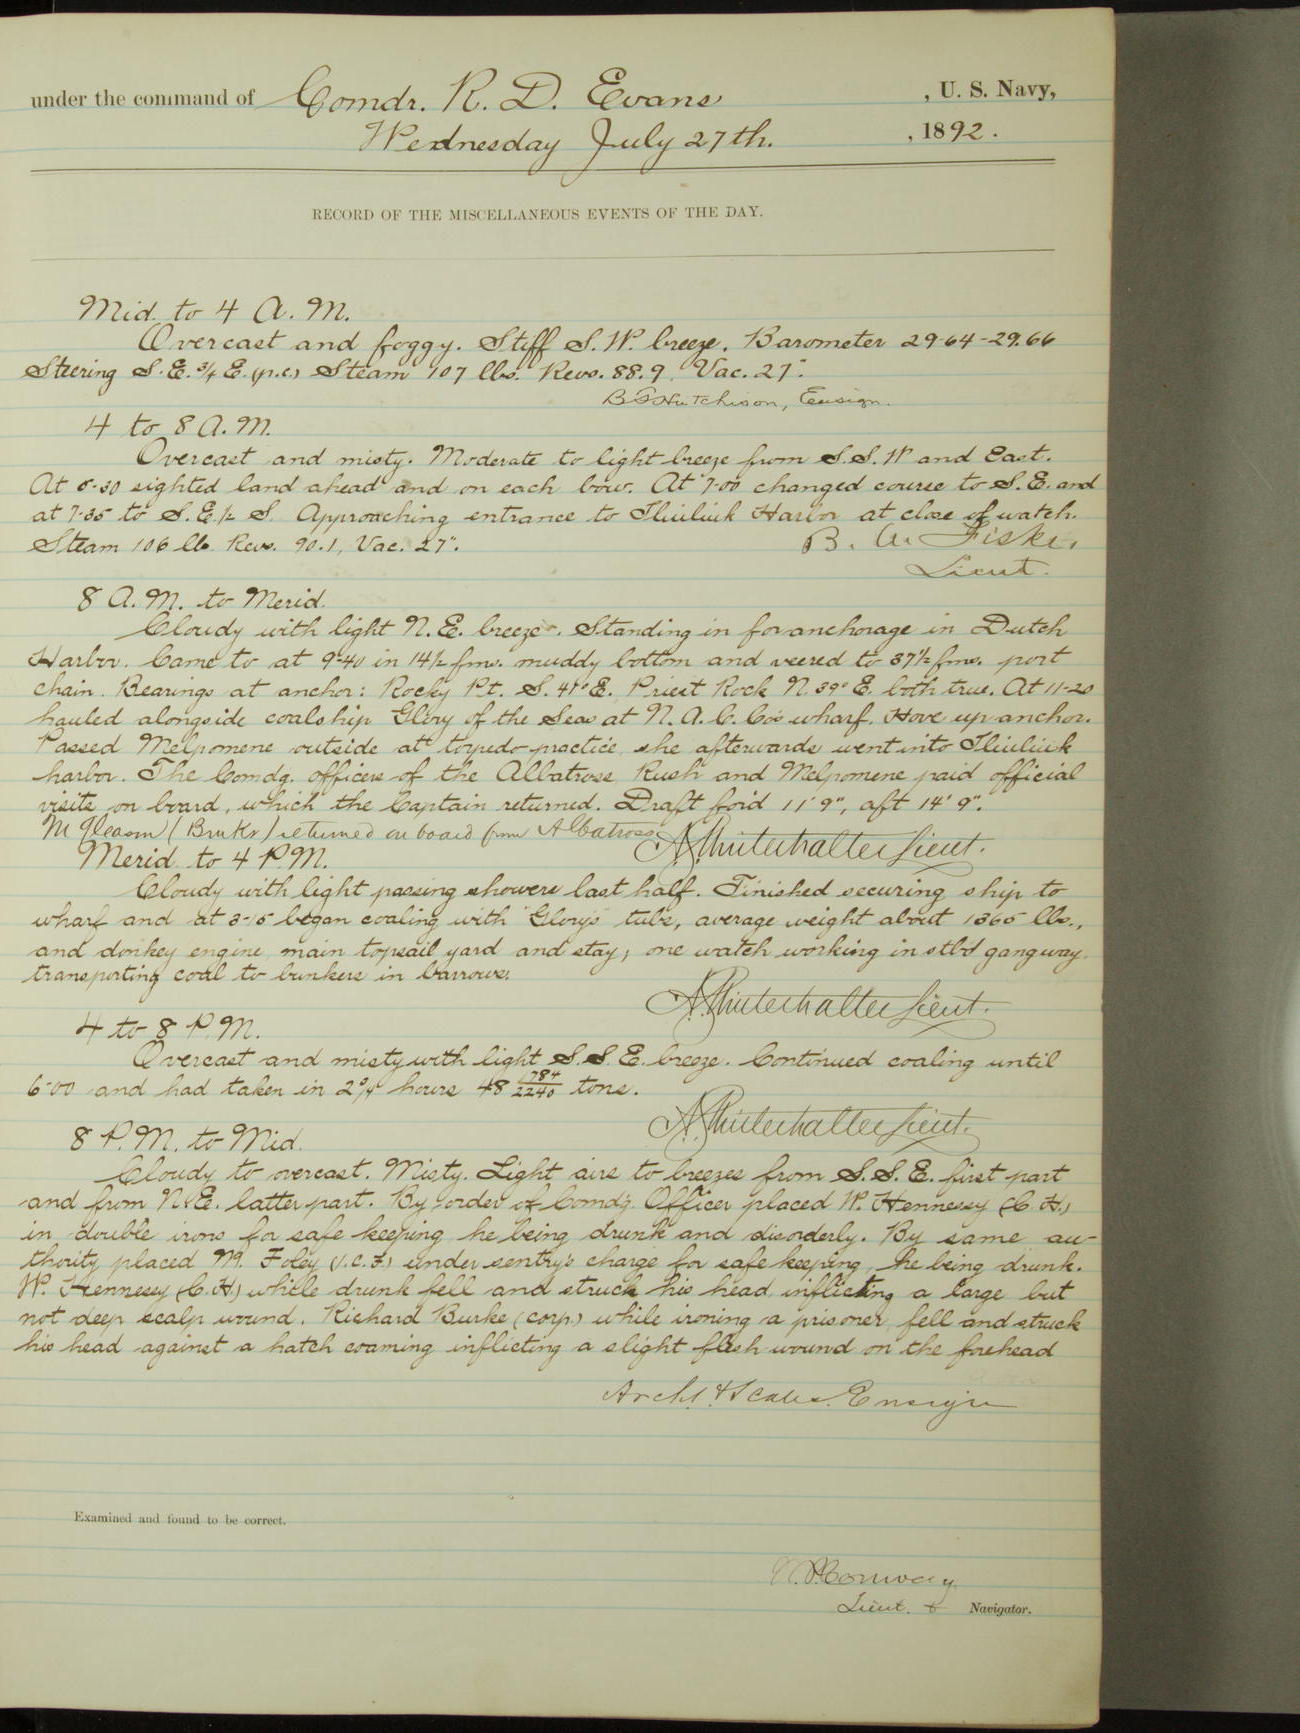 under the command of Comdr. R. D. Evans , U. S. Navy,
Wednesday July 27th. , 1892.
RECORD OF THE MISCELLANEOUS EVENTS OF THE DAY.
Mid. to 4 A.M.
Overcast and foggy. Stiff S.W. breeze. Barometer 29.64-29.66
Steering S.E. 3/4 E. (p.c.) Steam 107 lbs. Revs. 88.9. Vac. 27".
Hutchison, Ensign.
4 to 8 A.M.
Overcast and misty. Moderate to light breeze from S.S.W and East.
At 5-30 sighted land ahead and on each bow. At 7-00 changed course to S.E. and
at 7-35 to S.E. 1/2 S. Approaching entrance to Iliuliuk Harbor at close of watch.
Steam 106 lb. Revs. 90.1, Vac. 27". B. A. Fiske,
Lieut.
8 A.M. to Merid.
Cloudy with light N.E. breeze. Standing in for anchorage in Dutch
Harbor. Came to at 9-40 in 14 1/2 fms. muddy bottom and veered to 37 1/2 fms. port
chain. Bearings at anchor: Rocky Pt. S. 41° E. Priest Rock N. 39° E. both true. At 11-20
hauled alongside coalship Glory of the Seas at N. A. C. Co's wharf. Hove up anchor.
Passed Melpomene outside at torpedo practice, she afterwards went into Iliuliuk
harbor. The Comdg. officers of the Albatross, Rush and Melpomene paid official
visits on board, which the Captain returned. Draft for'd 11' 9", aft 14' 9".
M Gleason returned on board from Albatross. A. Winterhalter Lieut.
Merid. to 4 P.M.
Cloudy with light passing showers last half. Finished securing ship to
wharf and at 3-15 began coaling with "Glory's" tubs, average weight about 1365 lbs.,
and donkey engine, main topsail yard and stay; one watch working in stb'd gangway
transporting coal to bunkers in barrows.
A. Winterhalter Lieut.
4 to 8 P.M.
Overcast and misty with light S.S.E. breeze. Continued coaling until
6-00 and had taken in 2 3/4 hours 48 784/2240 tons.
A. Winterhalter Lieut.
8 P.M. to Mid.
Cloudy to overcast. Misty. Light airs to breezes from S.S.E. first part
and from N.E. latter part. By order of Comd'g. Officer placed W. Hennessy (C.H.)
in double irons for safe keeping he being drunk and disorderly. By same au-
thority placed M. Foley under sentry's charge for safe keeping, he being drunk.
W. Hennesy (C.H.) while drunk fell and struck his head inflicting a large but
not deep scalp wound. Richard Burke (corp.) while ironing a prisoner, fell and struck
his head against a hatch coaming inflicting a slight flesh wound on the forehead
Arch. H. Scales. Ensign
Examined and found to be correct.
Conway
Lieut. & Navigator.